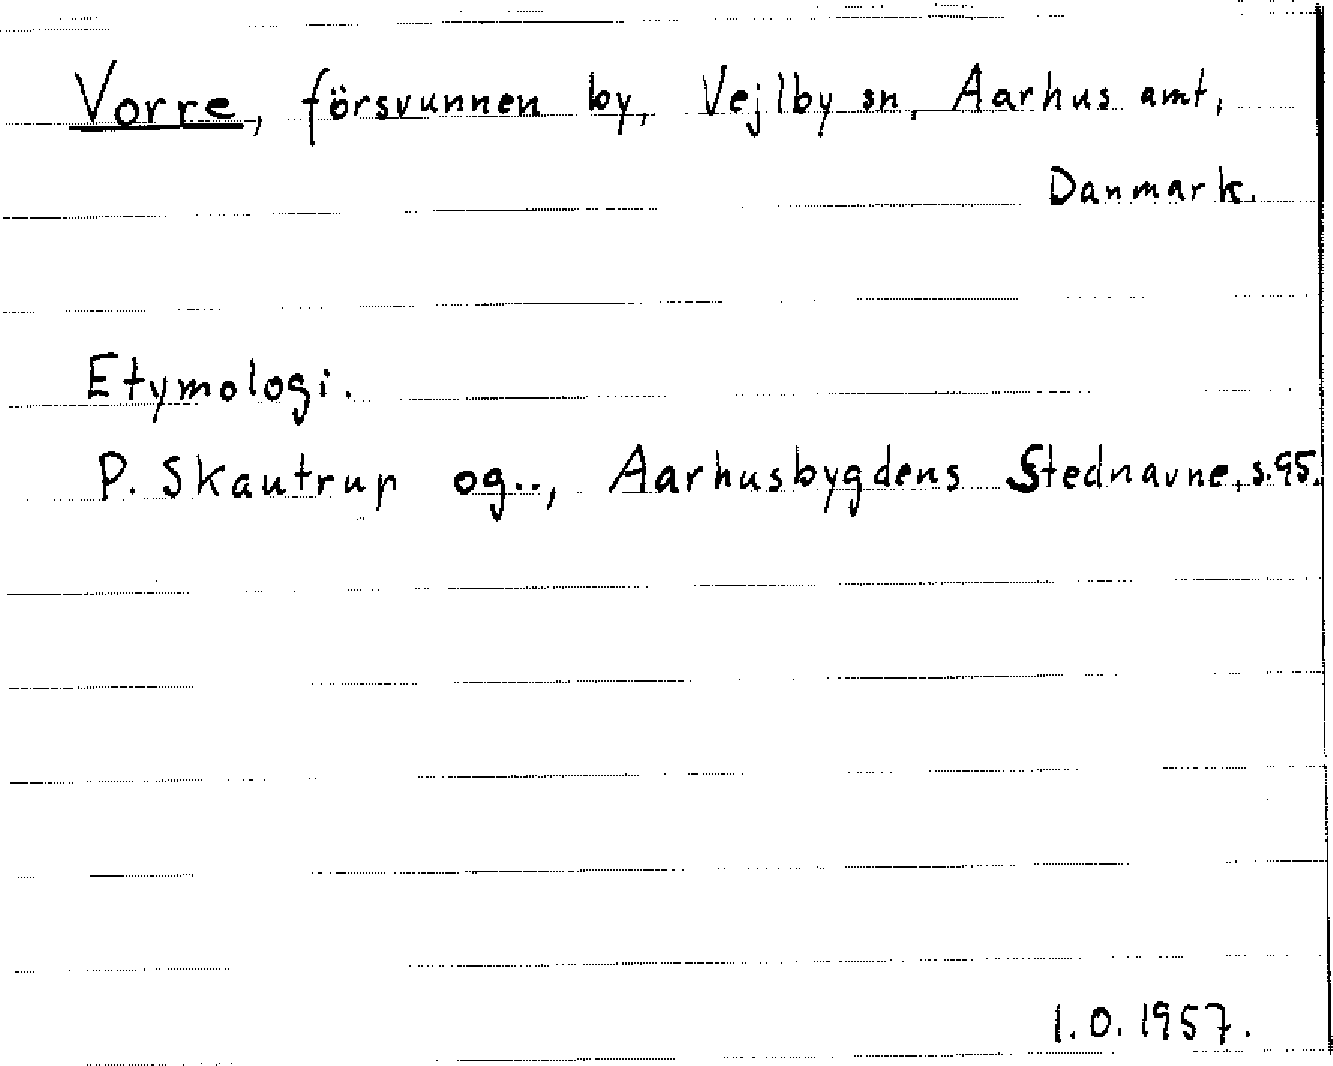 Vorre, försvunnen by, Vejlby sn, Aarhus amt,
Danmark.
Etymologi.
P. Skautrup og.., Aarhusbygdens Stednavne, s.95.
1.0.1957.